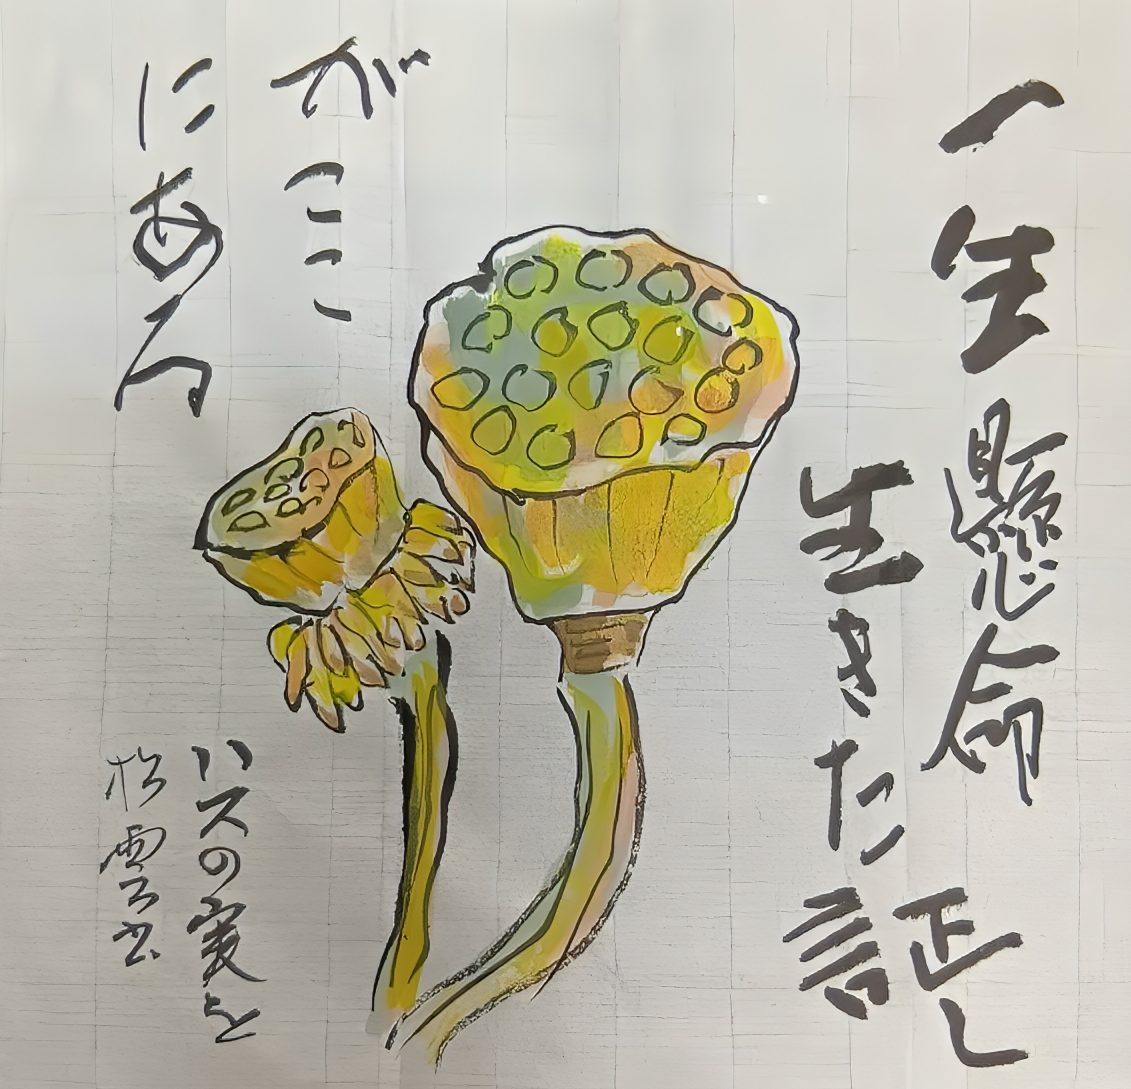 一生懸命
生きた証し
がここ
にある
ハスの実を
松雲書